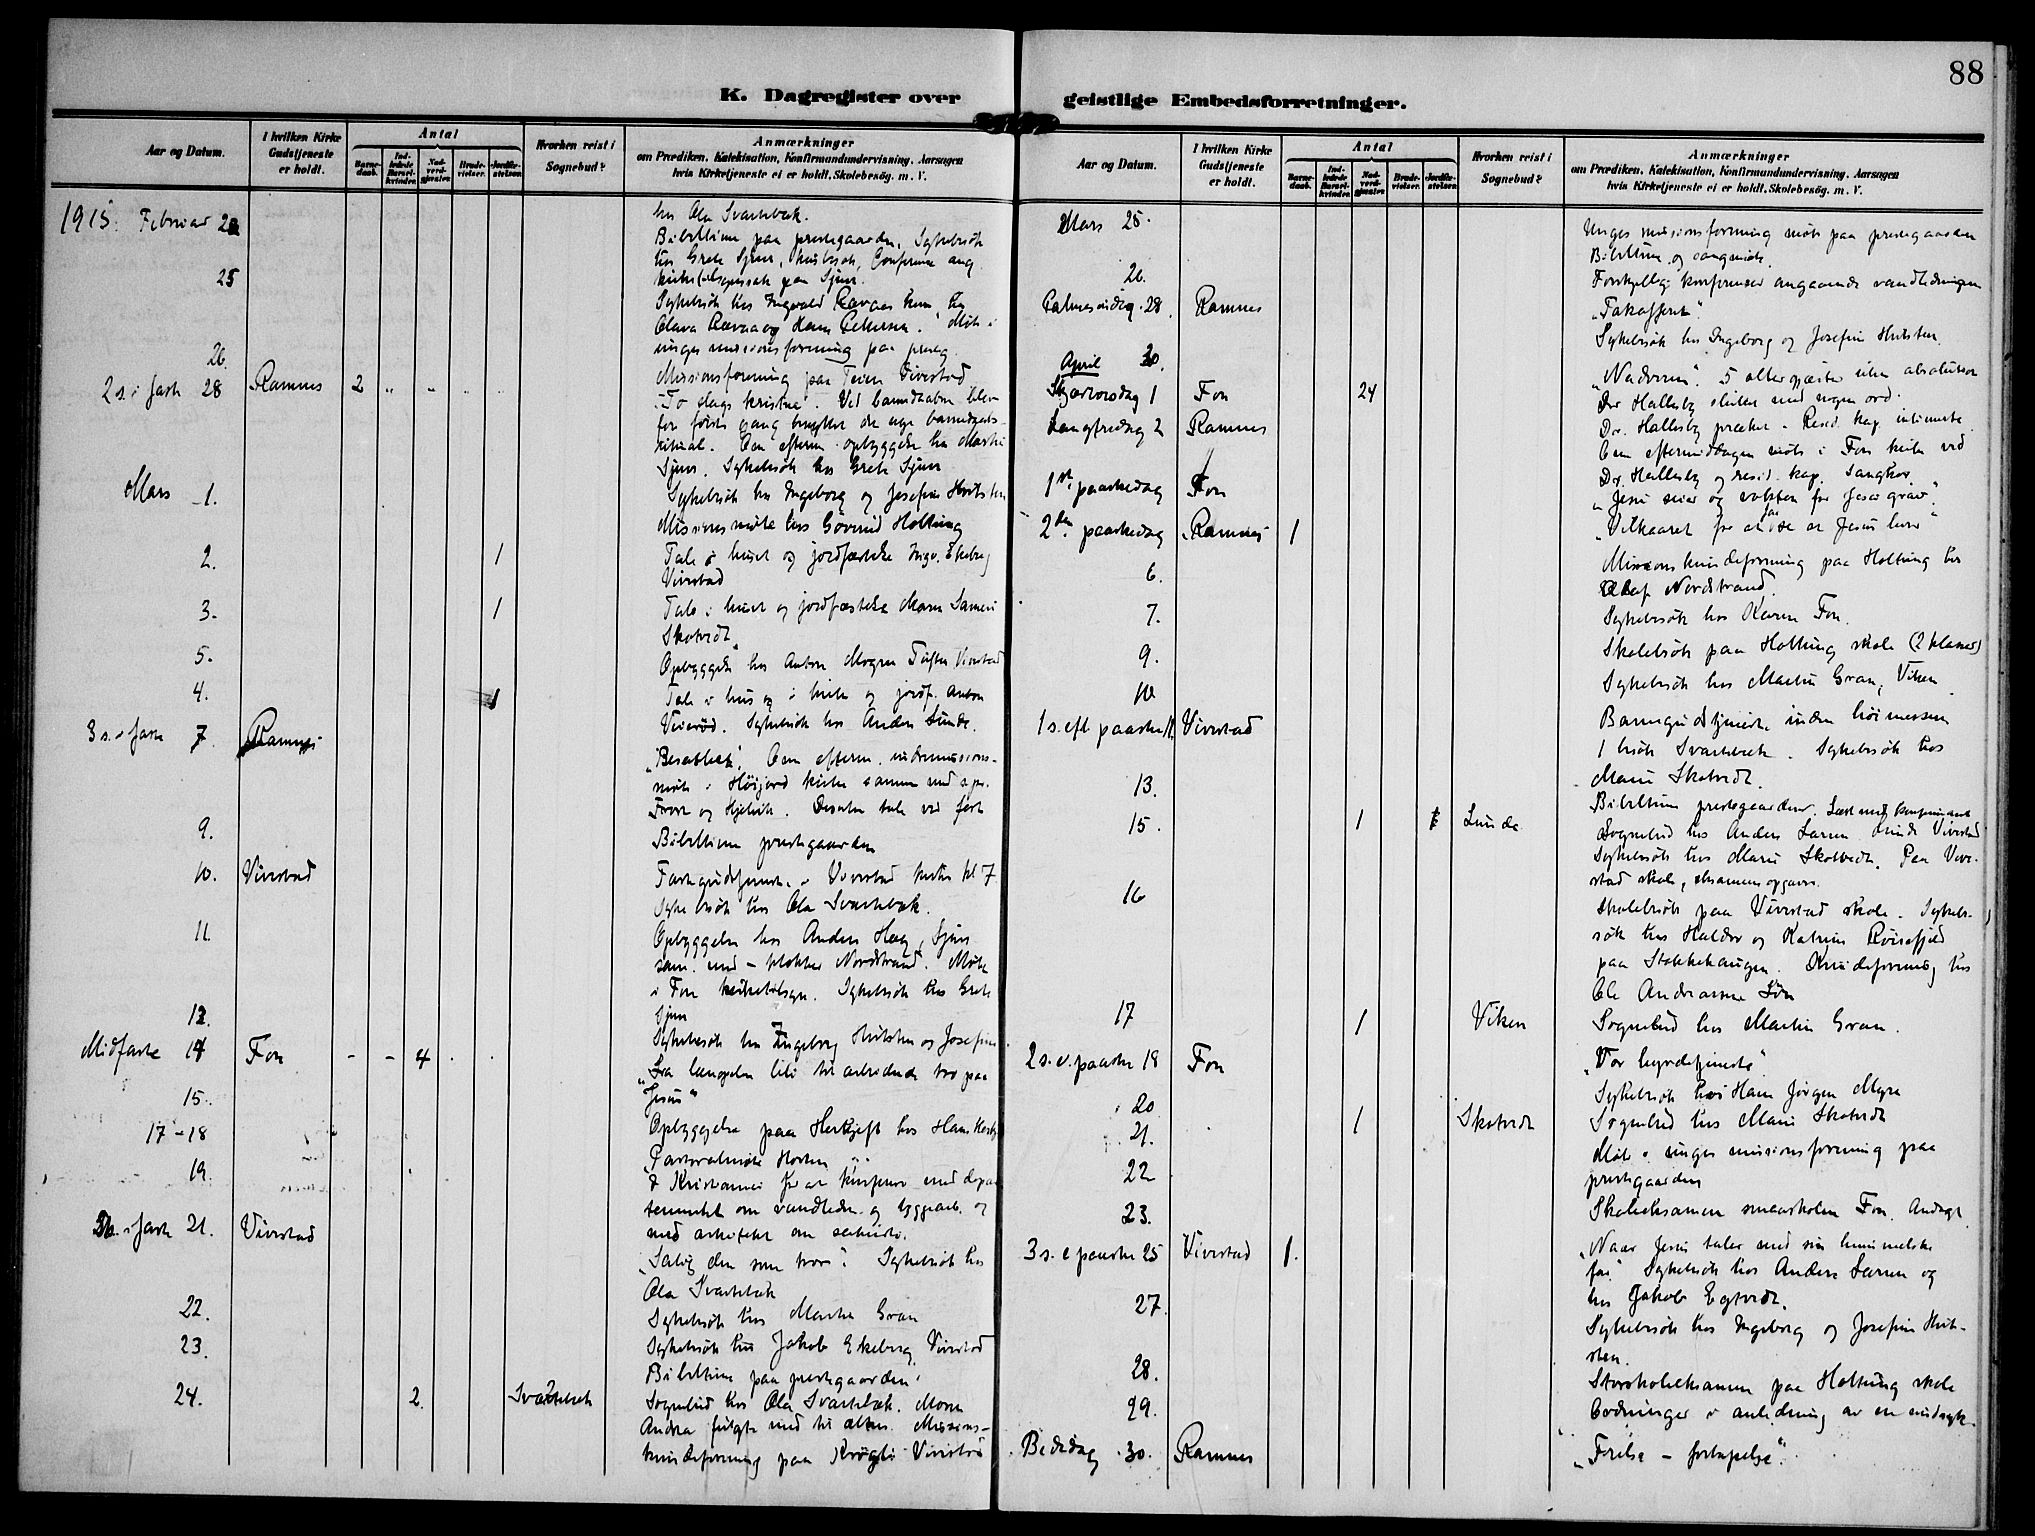 88
K. Dagregister over geistlige Embedsforretninger.
Aar og Datum.
I hvilken Kirke Gudstjeneste er holdt.
Antal
Barne-daab.
Ind-ledede Barsel-kvinder.
Nad-verd-gjæster.
Brude-vielser.
Jordfæ-stelser.
Hvorhen reist i Sognebud?
Anmærkninger
om Prædiken, Katekisation, Konfirmandundervisning, Aarsagen
hvis Kirketjeneste ei er holdt, Skolebesög. m. V.
1915. Februar
hos Ola Svartebæk.
Bibeltime paa prestegaarden. Sykebesök
hos Grete Sjuve, husbesök, Conferense ang.
25
Sykebesök hos Ingvald
Olava og Hans Pettersen. Möte i
unges missionsforening paa presteg.
26.
Missionsforening paa Teien Vivestad
2 s. i faste 28 Ramnes 2 " "
"To slags kristne". Ved barnedaaben blev
for förste gang benyttet det nye barnedaabs-
ritual. Om efterm. opbyggelse hos Martin
Sjuve. Sykebesök hos Grete Sjuve
Mars 1.
Sykebesök hos Ingeborg og Josefine Hvitsten
Missionsmöte hos Gövind Holtung
2. 1
Tale i huset og jordfæstelse Ingv. Ekeberg
Vivestad
3. 1
Tale i huset og jordfæstelse Maren
Skotvedt
5.
Opbyggelse hos Anton Mogren Tufte Vivestad
4. 1
Tale i hus og i kirke og jordf. Anton
Viveröd. Sykebesök hos Anders Lunde.
3 s. i faste 7. Ramnes
Om efterm. indremissions-
möte i Höijord kirke sammen med spr.
og Hjelvik. tale ved faste
9.
Bibeltime prestegaarden
10. Vivestad
Fastegudstjeneste i Vivestad kirke kl 7
Sykebesök hos Ola Svartebæk.
11.
Opbyggelse hos Anders Hæg, Sjuve
sam. med klokker Nordstrand. Möte
i Fon kirketilsyn. Sykebesök hos Grete
Sjuve
12.
Sykebesök hos Ingeborg Hvitsten og Josefine
Midfaste 14 Fon - - 4
"Fra længselen til til arbeidende tro paa
Jesus"
15.
Opbyggelse paa Herkjeft hos Hans
17-18
Pastoralmöte Horten
19.
I Kristiania for at konferere med depar
tementet om vandledn. og byggearb. og
med arkitekt om
s. i faste 21. Vivestad
"Salig den som tror". Sykebesök hos
Ola Svartebæk
22.
Sykebesök hos Martin Gran
23.
Sykebesök hos Jakob Ekeberg Vivestad
Bibeltime paa prestegaarden.
24. 2. Svartebæk
Sognebud hos Ola Svartebæk. Moren
Andrea fulgte med til alters. Missions-
kvindeforening paa Krøgli Vivestad
Aar og Datum.
I hvilken Kirke Gudstjeneste er holdt.
Antal
Barne-daab.
Ind-ledede Barsel-kvinder.
Nad-verd-gjæster.
Brude-vielser.
Jordfæ-stelser.
Hvorhen reist i Sognebud?
Anmærkninger
om Prædiken, Katekisation, Konfirmandundervisning, Aarsagen
hvis Kirketjeneste ei er holdt, Skolebesög. m. V.
Mars 25.
Unges missionsforening möte paa prestegaarden
Bibeltime og sangmöte.
26.
Forskjellige konferenser angaaende vandledningen
Palmesöndag 28. Ramnes
"Takofferet".
30.
Sykebesök hos Ingeborg og Josefine Hvitsten
April
Skjærtorsdag 1 Fon 24
"Nadveren". 5 altergjæster uten absolution
Dr. Hallesby sluttet med nogen ord.
Langfredag 2 Ramnes
Dr. Hallesby præket. Resid. kap. intimerte
Om eftermiddagen möte i Fon kirke ved
Dr. Hallesby og resid. kap. Sangkor
1ste paaskedag Fon
"Jesu seier og vakten for Jesu grav".
2den paaskedag Ramnes 1
"Vilkaaret for at faa se at Jesus lever"
6.
Missionskvindeforening paa Holtung hos
Olaf Nordstrand.
7.
Sykebesök hos Karen Fon.
9.
Skolebesök paa Holtung skole (2 klasser)
10
Sykebesök hos Martin Gran, Viken.
1 s. eft. paaske 11. Vivestad
Barnegudstjeneste inden höimessen
1 besök Svartebæk. Sykebesök hos
Marie Skotvedt.
13.
Bibeltime prestegaarden. Læst med konfirmant
15. 1 Lunde
Sognebud hos Anders Larsen Lunde Vivestad
Sykebesök hos Marie Skotvedt. Paa Vive-
stad skole, eksamensopgaver.
16
Skolebesök paa Vivestad skole. Sykebe-
sök hos Haldor og Katrine Röisefjeld
paa Stokkehaugen. Kvindeforening hos
Ole Andreasen
17 1 Viken
Sognebud hos Martin Gran.
2 s. e. paaske 18 Fon
"Vor hyrdetjeneste"
20
Sykebesök hos Hans Jörgen Myre
21. 1 Skotvedt
Sognebud hos Marie Skotvedt
22
Möte i unges missionsforening paa
prestegaarden
23.
Skoleeksamen smaaskolen Fon. Andagt.
3 s. e paaske 25 Vivestad 1.
"Naar Jesus taler med sin himmelske
far". Sykebesök hos Anders Larsen og
hos Jakob Egtvedt.
27.
Sykebesök hos Ingeborg og Josefine Hvit-
sten.
28.
Storskoleeksamen paa Holtung skole
29.
i anledning av en
Bededag 30. Ramnes
"Frelse - fortapelse".